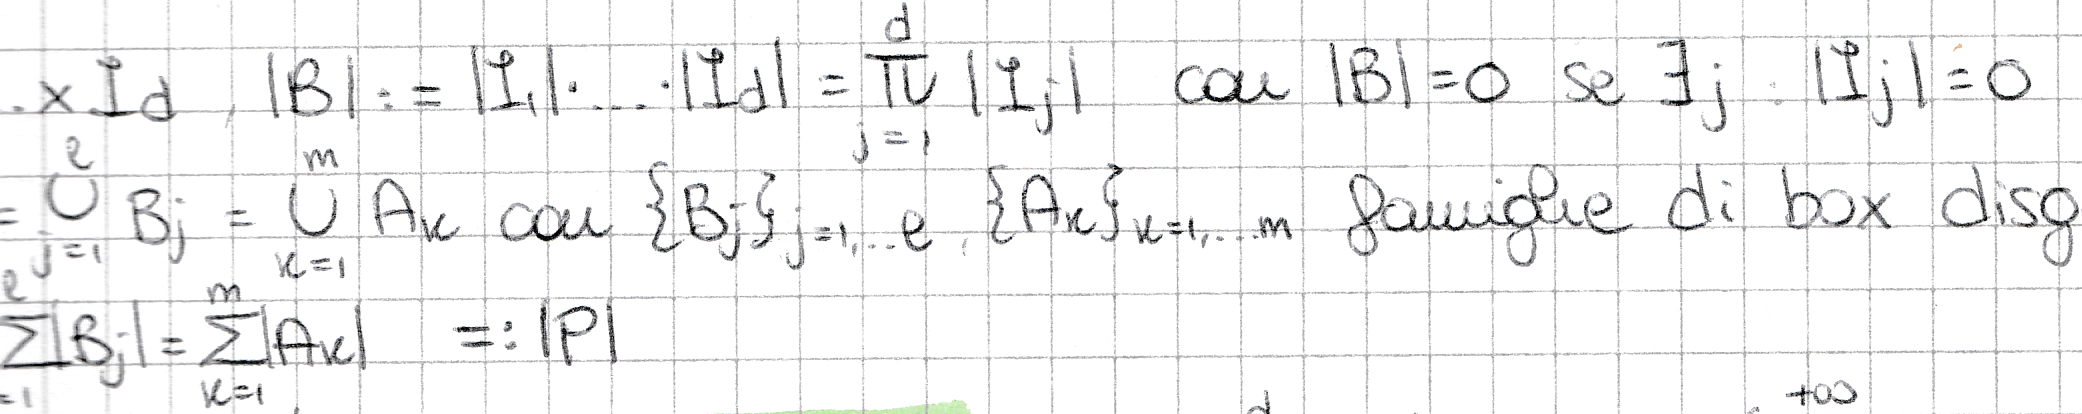 . x I_d , |B| := |I_1| · ... · |I_d| = ∏_{j=1}^{d} |I_j| con |B| = 0 se ∃j : |I_j| = 0
= ∪_{j=1}^{ℓ} B_j = ∪_{k=1}^{m} A_k con {B_j}_{j=1,...ℓ} , {A_k}_{k=1,...m} famiglie di box disg
∑_{=1}^{ℓ} |B_j| = ∑_{k=1}^{m} |A_k| =: |P|
d +∞